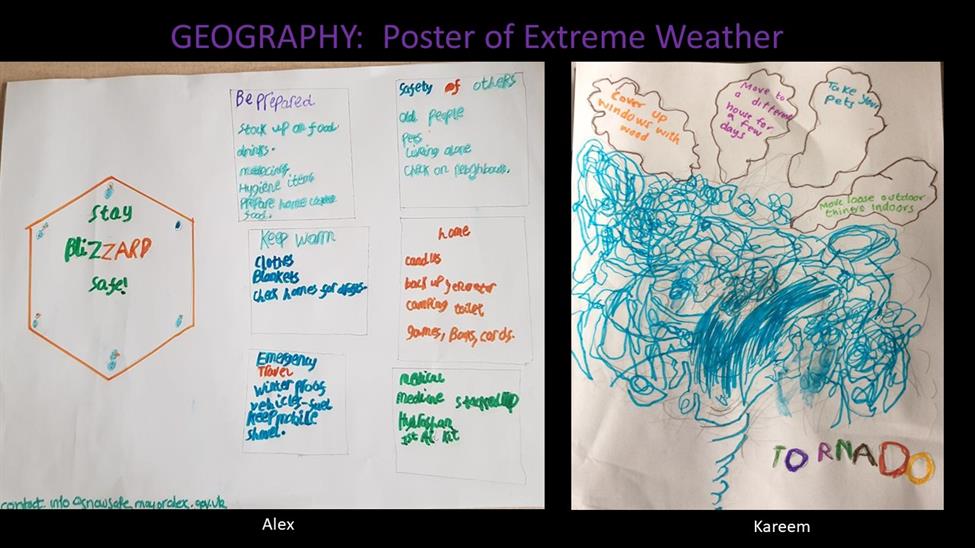 GEOGRAPHY: Poster of Extreme Weather
Stay
BLiZZARD
Safe!
Be prepared
Stock up on food
drinks.
Hygiene items
Prepare home cooked
food.
Safety of others
old people
pets
Living alone
Check on neighbours.
Keep warm
Clothes
Blankets
Check homes for
home
candles
back up generator
camping toilet
games, Books, cards.
Emergency
Travel
Winter proof
vehicles-fuel
Keep mobile
shovel.
medical
medicine stocked up
1st Aid Kit
contact info@snowsafe.mayoralex.gov.uk
Alex
Cover up
windows with
wood
Move to
a different
house for
a few
days
Take your
Pets
Move loose outdoor
things indoors
TORNADO
Kareem